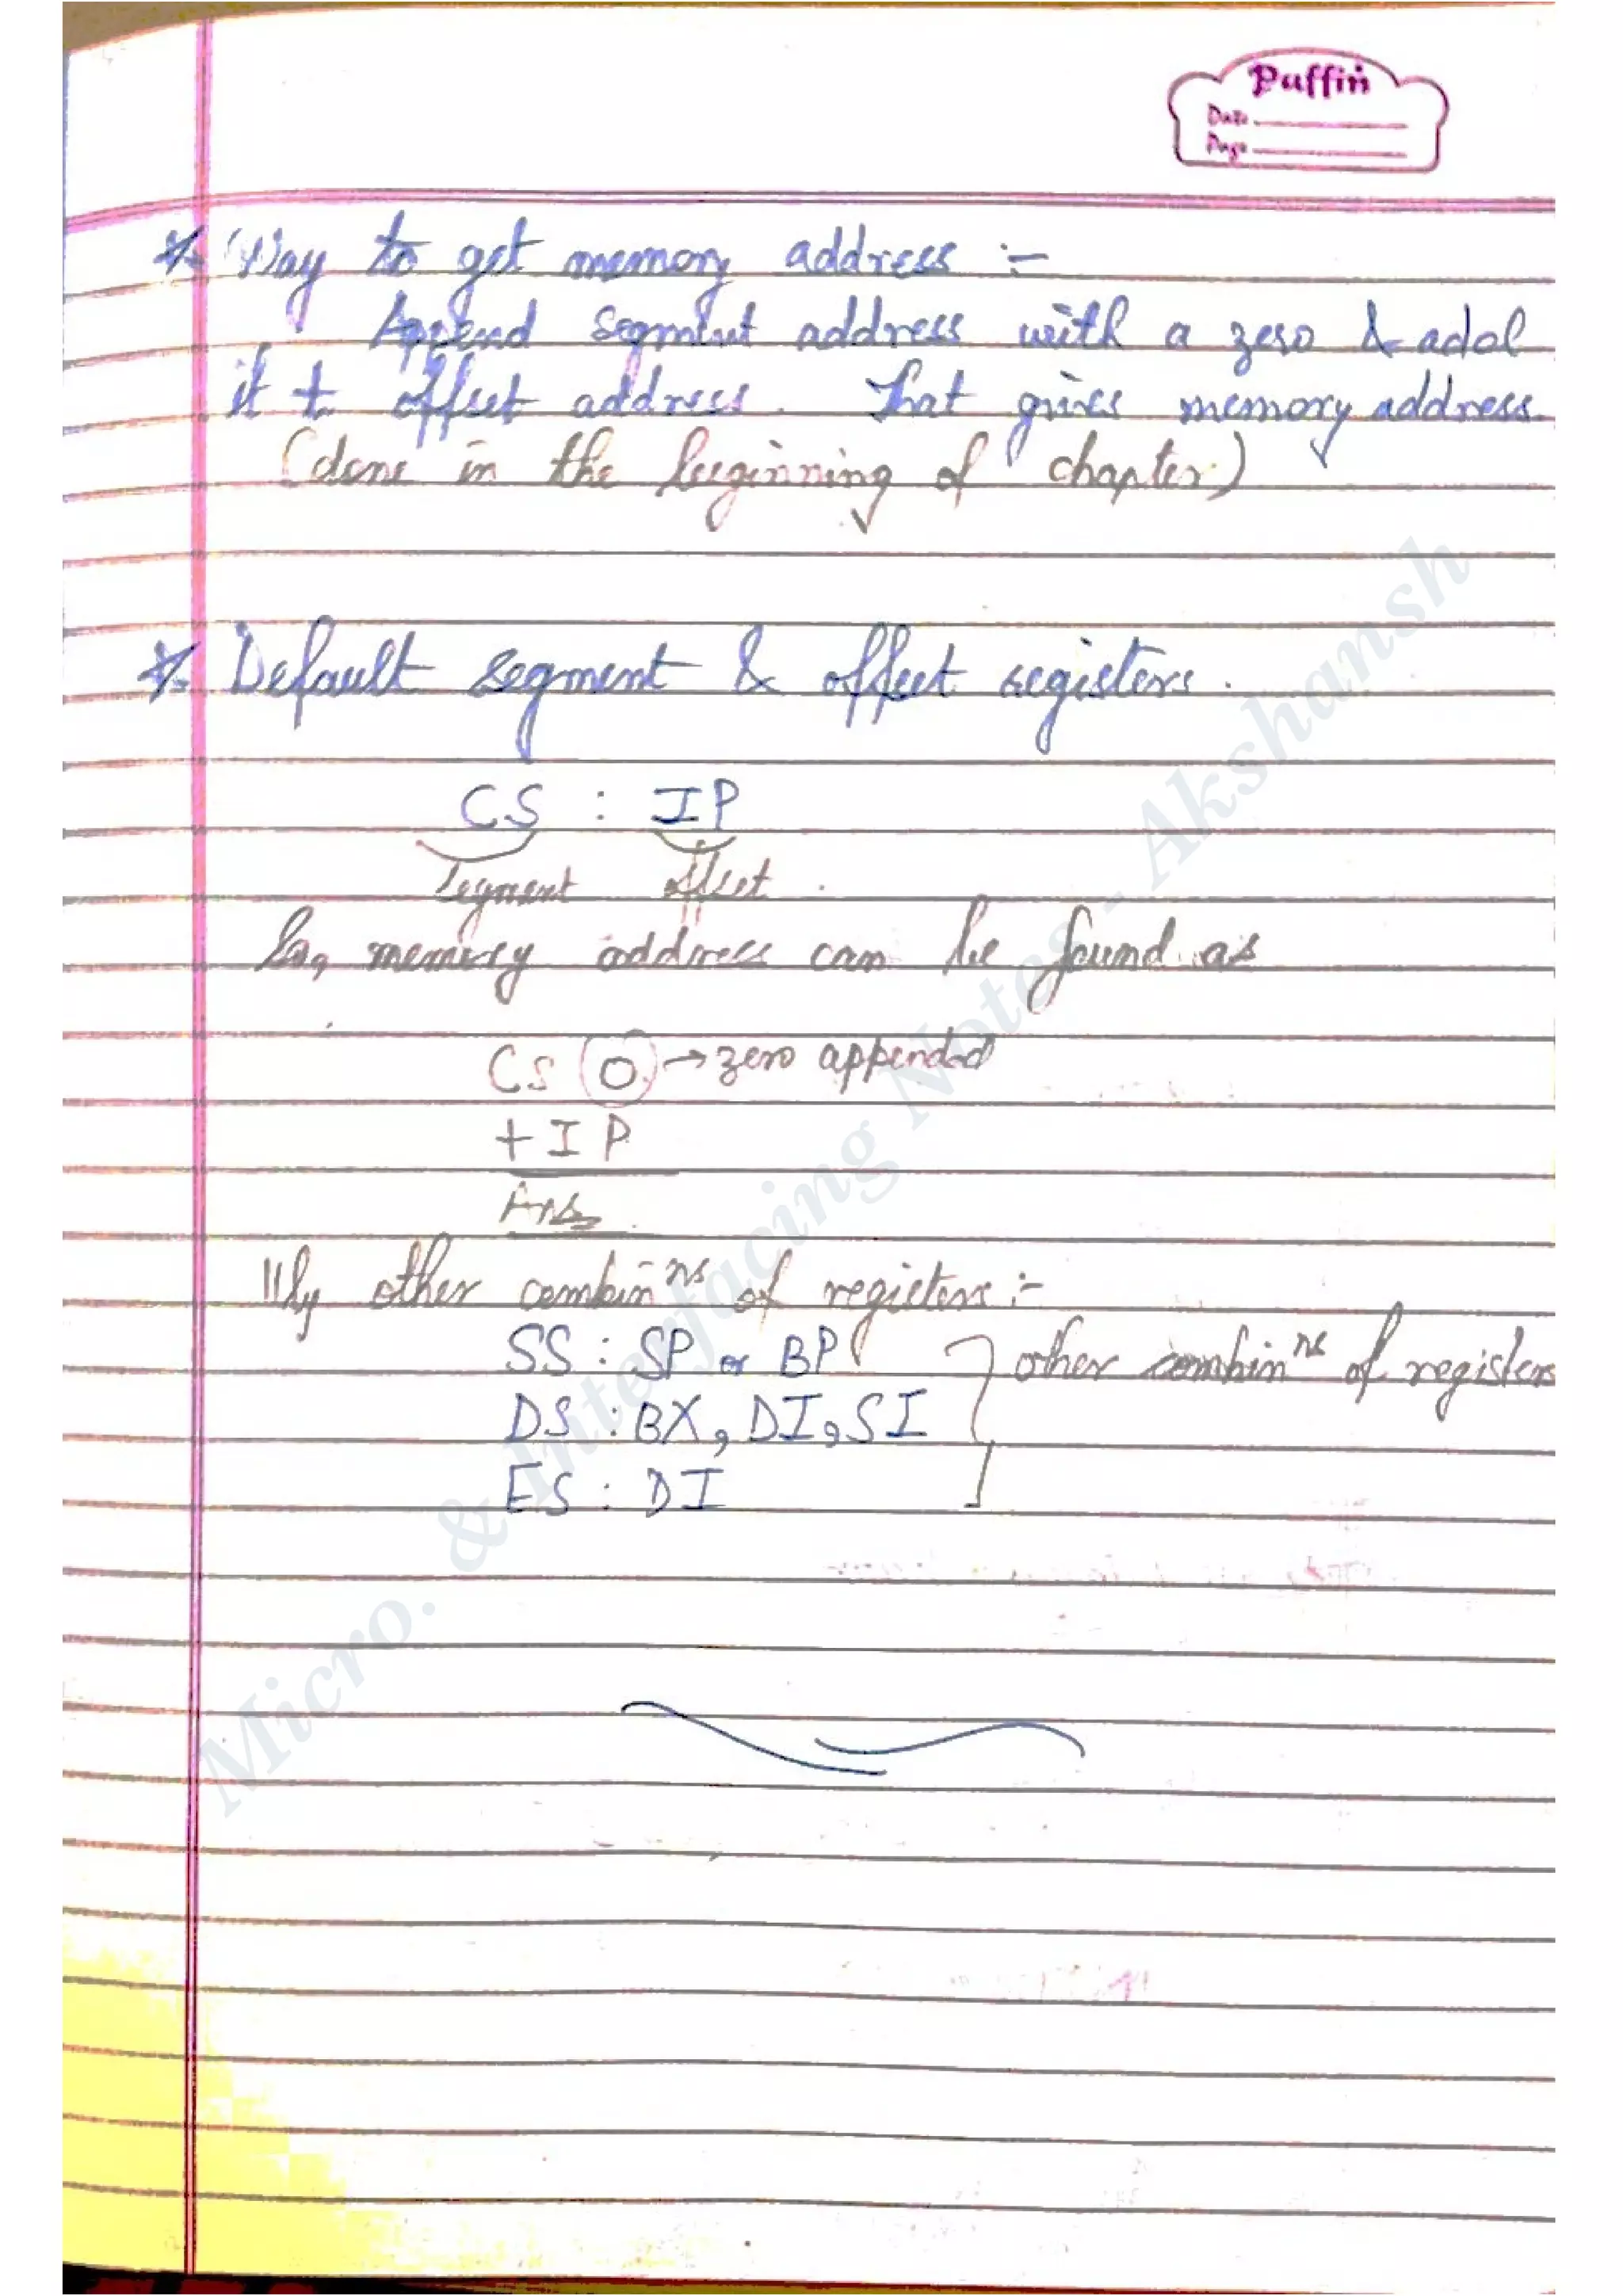 Puffin
Date
Page
* Way to get memory address :-
Append segment address with a zero & add
it to offset address. That gives memory address
(done in the beginning of chapter)
* Default segment & offset registers.
CS : IP
Segment offset.
So, memory address can be found as
CS 0 → zero appended
+ I P
Ans.
|||ly other combinⁿˢ of registers :-
SS : SP or BP } other combinⁿˢ of registers
DS : BX, DI, SI
ES : DI
Micro. & Interfacing Notes - Akshansh